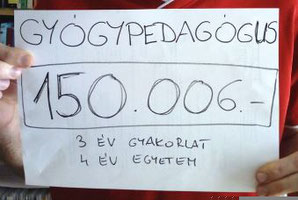 GYÓGYPEDAGÓGUS
150.006.-
3 ÉV GYAKORLAT
4 ÉV EGYETEM